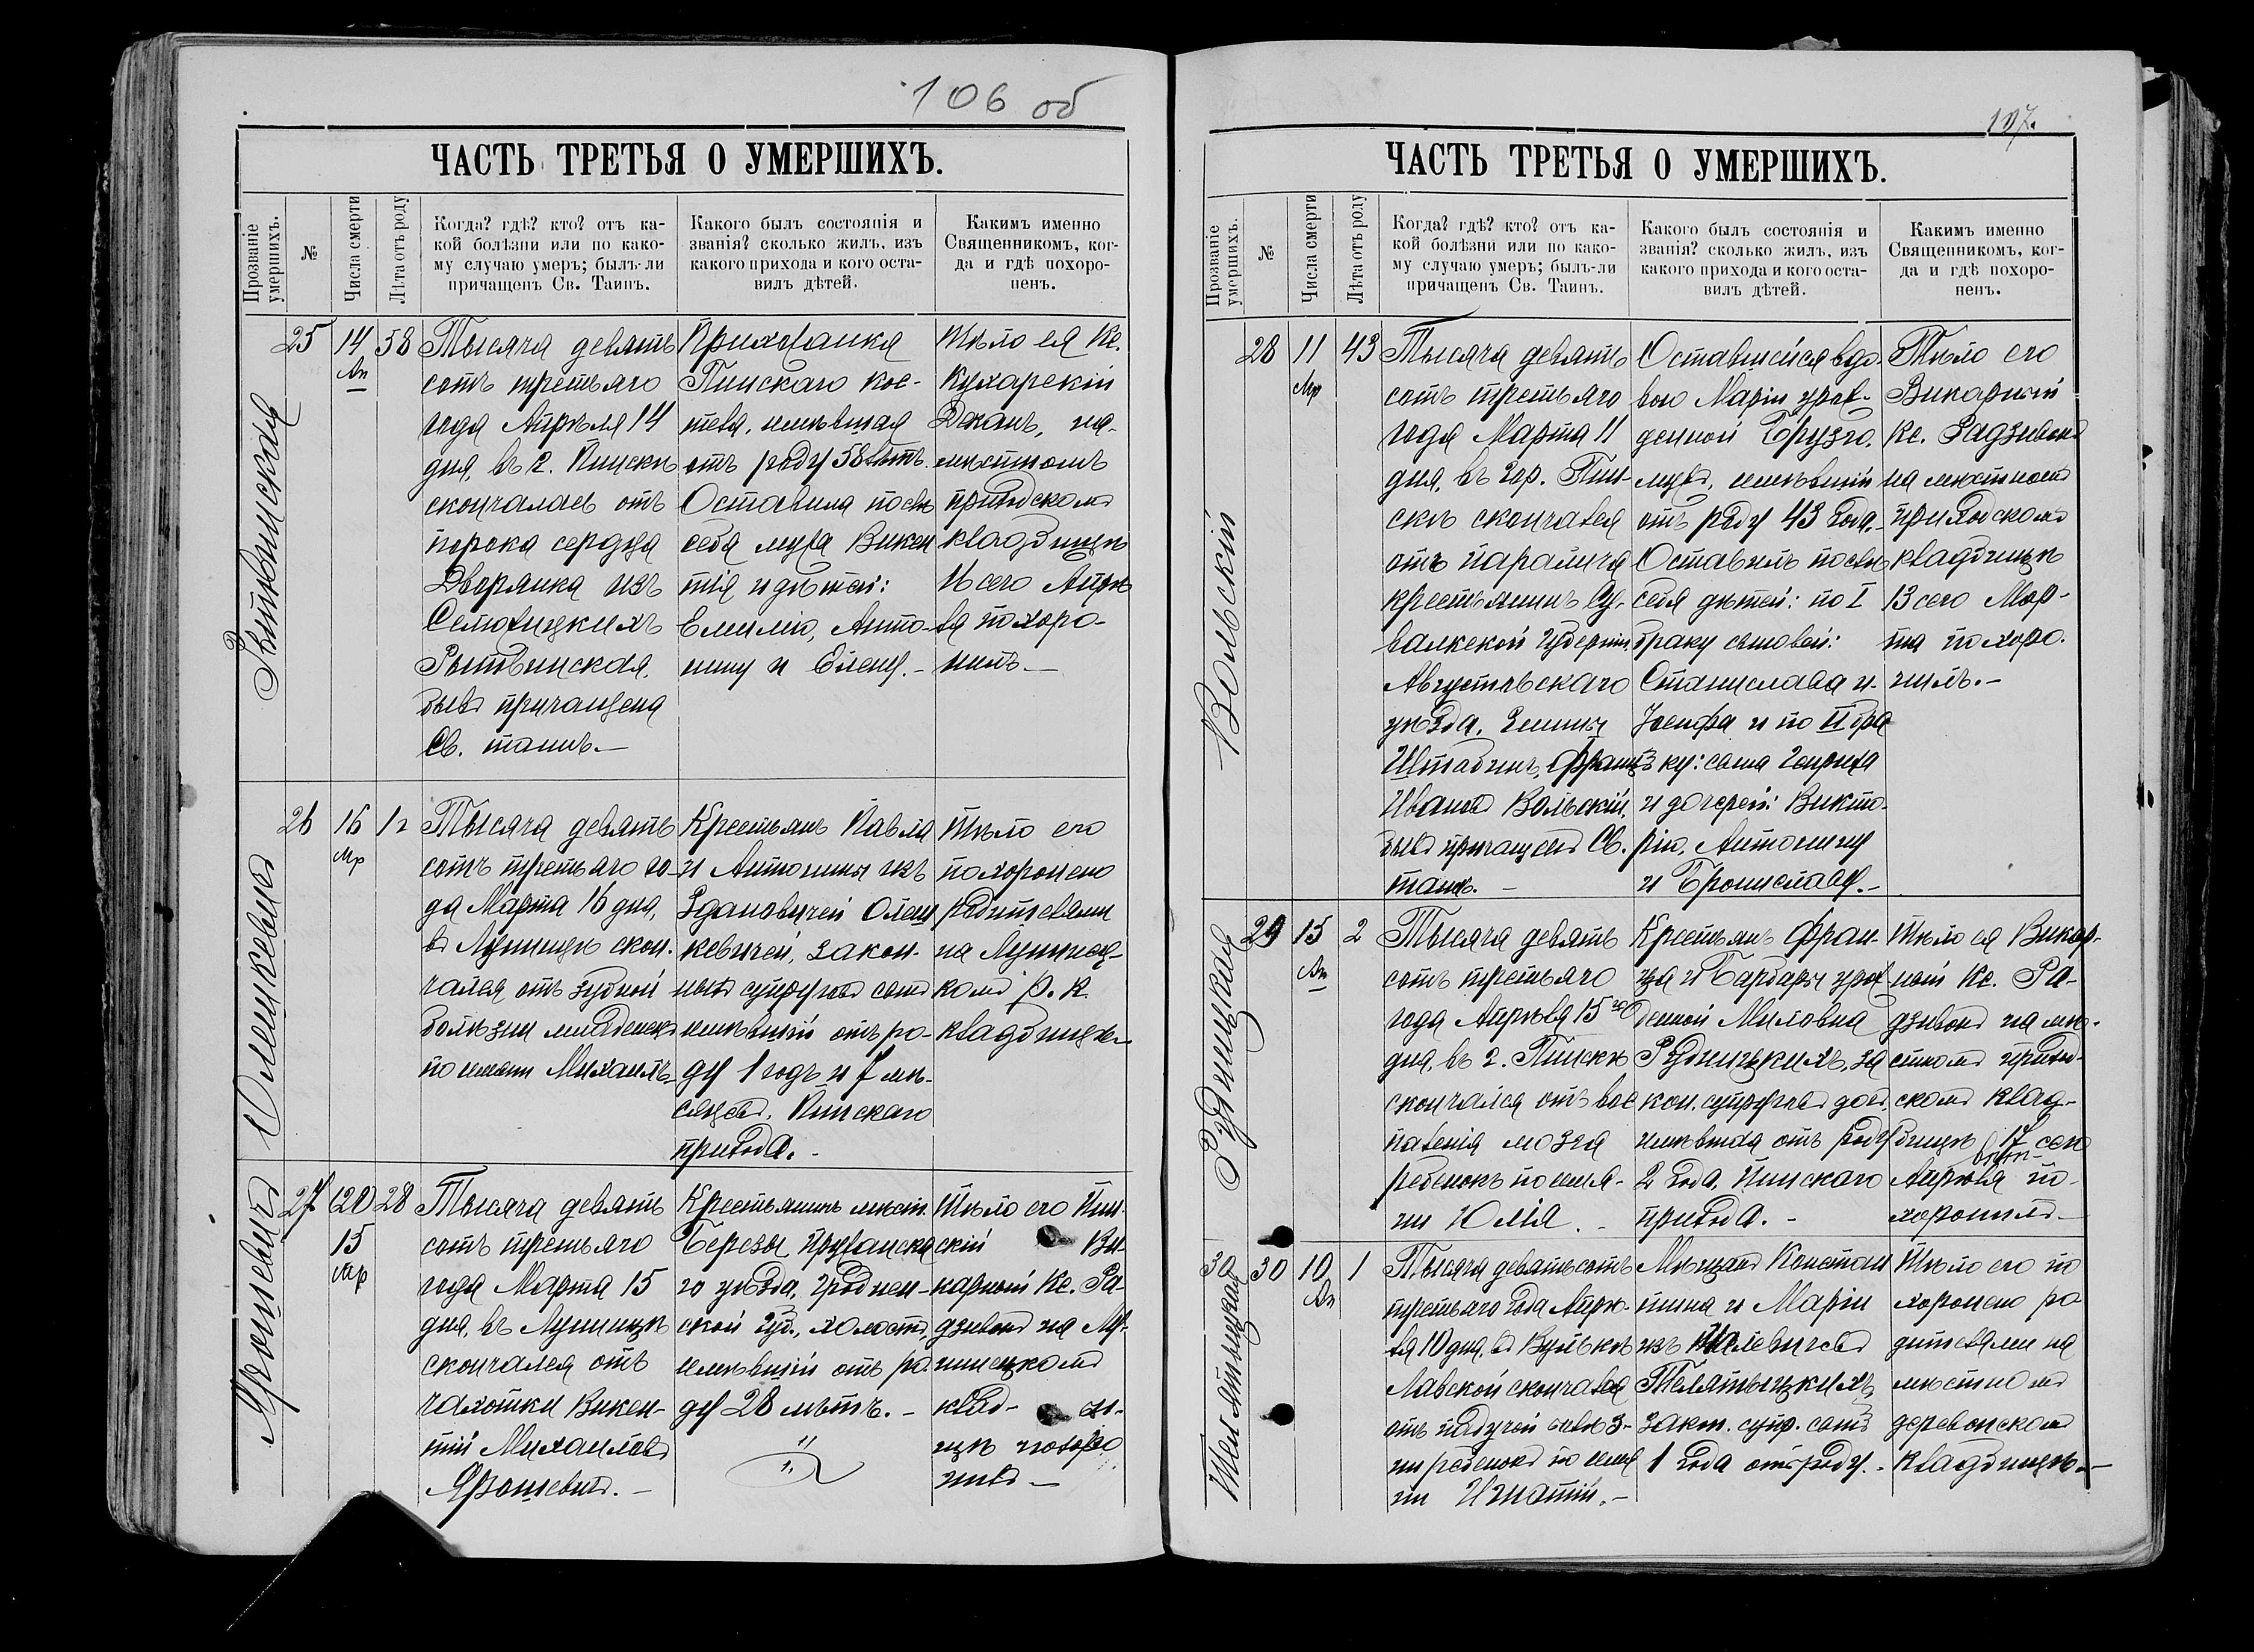 106 об
ЧАСТЬ ТРЕТЬЯ О УМЕРШИХЪ.
Прозваніе умершихъ.
№
Числа смерти
Лѣта отъ роду
Когда? гдѣ? кто? отъ ка-
кой болѣзни или по како-
му случаю умеръ; былъ-ли
причащенъ Св. Таинъ.
Какого былъ состоянія и
званія? сколько жилъ, изъ
какого прихода и кого оста-
вилъ дѣтей.
Какимъ именно
Священникомъ, ког-
да и гдѣ похоро-
ненъ.
25
14
Ап
58
Тысяча девять
сотъ третьяго
года Апрѣля 14
дня, въ г. Пинскѣ
скончалась отъ
порока сердца
Дворянка изъ
Рытвинская,
была причащена
Св. таинъ.—
Прихожанка
Пинскаго кос-
тела, имѣвшая
отъ роду 58 лѣтъ.
Оставила послѣ
себя мужа Викен
тія и дѣтей:
Емилію, Анто-
нину и Елену.—
Тѣло ея Кс.
Кухарскій
Деканъ, на
мѣстномъ
приходскомъ
кладбищѣ
16 сего Апрѣ
ля похоро-
нилъ.—
Олешкевичъ
26
16
Мр
1 2
Тысяча девять
сотъ третьяго го-
да Марта 16 дня,
въ Лунинцѣ скон-
чался отъ зубной
болѣзни младенецъ
по имени Михаилъ
Крестьянъ Павла
и Антонины изъ
Здановичей Олеш
кевичей, закон-
ныхъ супруговъ сынъ
имѣвшій отъ ро-
ду 1 годъ и 7 мѣ-
сяцевъ, Пинскаго
прихода.-
Тѣло его
похоронено
родителями
на Лунинец-
комъ р. к.
кладбищѣ.—
Ярошевичъ
27
(20)
15
Мр
28
Тысяча девять
сотъ третьяго
года Марта 15
дня, въ Лунинцѣ
скончался отъ
чахотки Викен-
тій Михаиловъ
Ярошевичъ.—
Крестьянинъ мѣст.
Березы Пружанска
го уѣзда, Гроднен-
ской губ., холостъ,
имѣвшій отъ ро-
ду 28 лѣтъ.-
Тѣло его Пин-
скій Ви-
карный Кс. Ра-
дзивонъ на Лу-
нинецкомъ
клад- би-
щѣ похоро
нилъ—
107.
ЧАСТЬ ТРЕТЬЯ О УМЕРШИХЪ.
Прозваніе умершихъ.
№
Числа смерти
Лѣта отъ роду
Когда? гдѣ? кто? отъ ка-
кой болѣзни или по како-
му случаю умеръ; былъ-ли
причащенъ Св. Таинъ.
Какого былъ состоянія и
званія? сколько жилъ, изъ
какого прихода и кого оста-
вилъ дѣтей.
Какимъ именно
Священникомъ, ког-
да и гдѣ похоро-
ненъ.
Вольскій
28
11
Мр
43
Тысяча девять
сотъ третьяго
года Марта 11
дня, въ гор. Пин-
скѣ скончался
отъ паралича
крестьянинъ Су-
валкской губерніи,
Августовскаго
уѣзда, гмины
Штабинъ, Францъ
Ивановъ Вольскій,
былъ причащенъ Св.
таинъ.-
Оставшейся вдо-
вою Маріи урож-
денной
имѣвшій
отъ роду 43 года.
Оставилъ послѣ
себя дѣтей: по I
браку сыновей:
Станислава и
Іосифа и по II бра
ку: сына Генриха
и дочерей: Викто-
рію, Антонину
и Брониславу.-
Тѣло его
Викарный
Кс. Радзивонъ
на мѣстномъ
приходскомъ
кладбищѣ
13 сего Мар-
та похоро-
нилъ.-
Рудницкая
29
15
Ап
2
Тысяча девять
сотъ третьяго
года Апрѣля 15го
дня, въ г. Пинскѣ
скончался отъ вос
паленія мозга
ребенокъ по име-
ни Юлія.-
Крестьянъ Фран-
ца и Барбары урож
денной
Рудницкихъ, за
кон. супруговъ дочь,
имѣвшая отъ роду
2 года, Пинскаго
прихода.-
Тѣло ея Викар-
ный Кс. Ра-
дзивонъ на мѣ-
стномъ приход-
скомъ клад-
бищѣ 17 сего
Апрѣля по-
хоронилъ.—
Телятыцкая
30
30
10
Ап
1
Тысяча девятьсотъ
третьяго года Апрѣ-
ля 10 дня, въ Вулькѣ
Лавской скончался
отъ падучей болѣз-
ни ребенокъ по име
ни Игнатій.-
Мѣщанъ Констан
тина и Маріи
изъ
Телятыцкихъ,
закон. супр. сынъ
1 года отъ роду.-
Тѣло его по
хоронено ро
дителями на
мѣстномъ
деревенскомъ
кладбищѣ.—